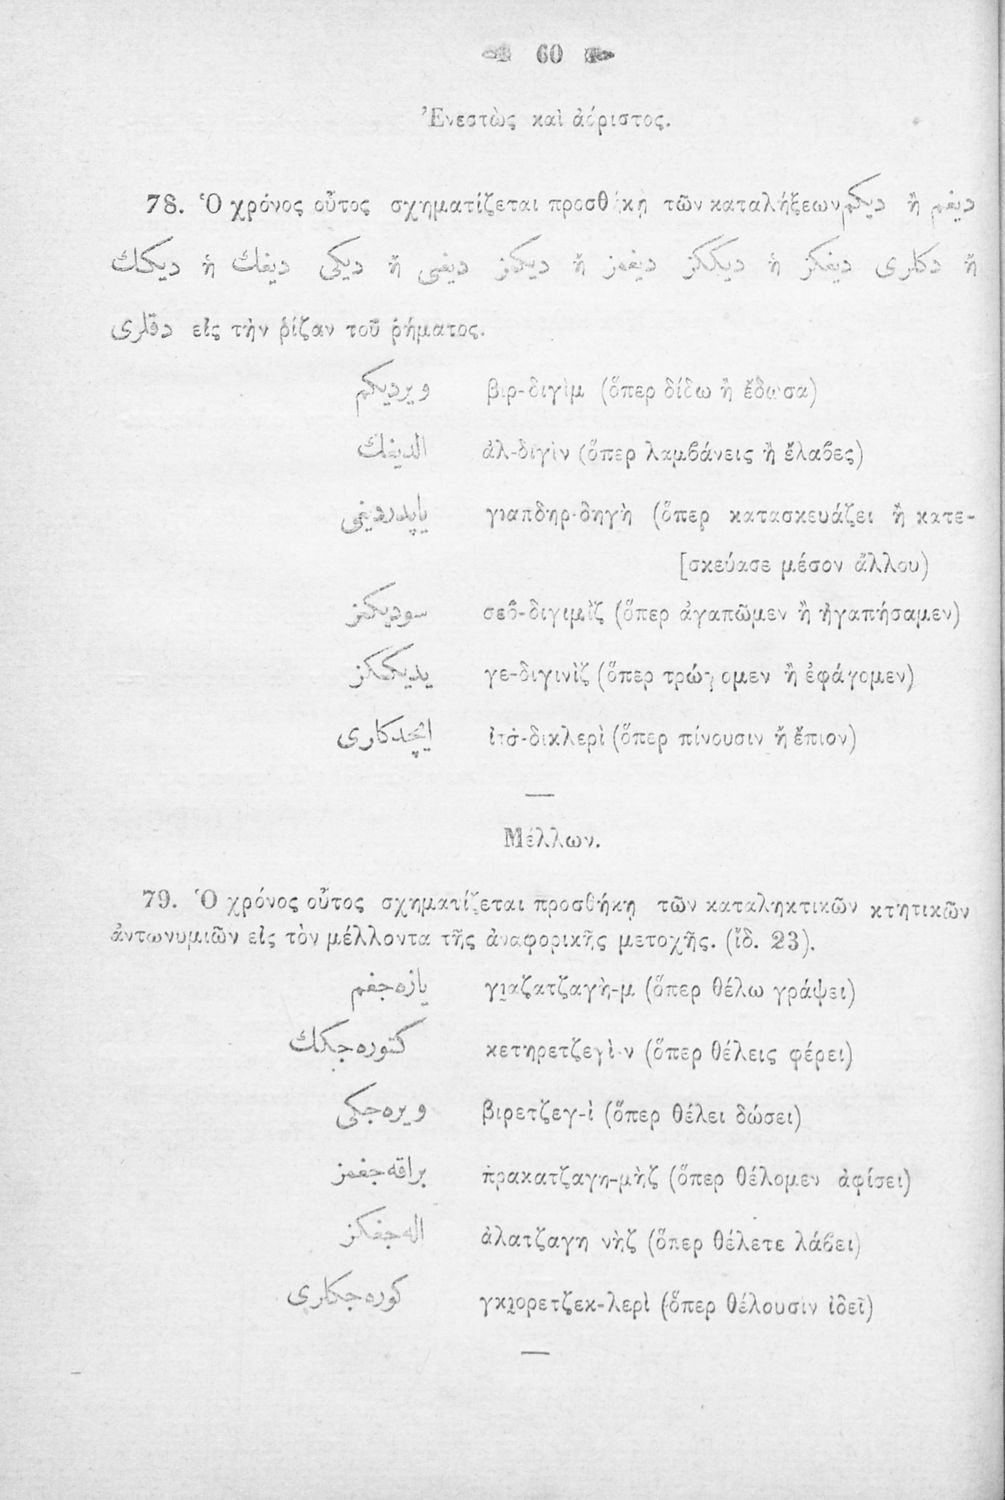 60
Ἐνεστὼς καὶ ἀόριστος.
78. Ὁ χρόνος οὗτος σχηματίζεται προσθήκῃ τῶν καταλήξεων ديكم ἢ ديغم
ديكك ἢ ديغك ديكى ἢ ديغى ديكمز ἢ ديغمز ديككز ἢ ديغكز دكلرى ἢ
دقلرى εἰς τὴν ῥίζαν τοῦ ῥήματος.
ويرديكم βιρ-διγὶμ (ὅπερ δίδω ἢ ἔδωσα)
الديغك ἀλ-διγὶν (ὅπερ λαμβάνεις ἢ ἔλαβες)
ياپدرديغى γιαπδηρ-δηγὴ (ὅπερ κατασκευάζει ἢ κατε-
[σκεύασε μέσον ἄλλου)
سوديكمز σεβ-διγιμὶζ (ὅπερ ἀγαπῶμεν ἢ ἠγαπήσαμεν)
يديككز γε-διγινὶζ (ὅπερ τρώγομεν ἢ ἐφάγομεν)
ايچدكلرى ἰτσ-δικλερὶ (ὅπερ πίνουσιν ἢ ἔπιον)
Μέλλων.
79. Ὁ χρόνος οὗτος σχηματίζεται προσθήκῃ τῶν καταληκτικῶν κτητικῶν
ἀντωνυμιῶν εἰς τὸν μέλλοντα τῆς ἀναφορικῆς μετοχῆς. (ἴδ. 23).
يازه‌جغم γιαζατζαγὴ-μ (ὅπερ θέλω γράψει)
كتوره‌جكك κετηρετζεγὶ-ν (ὅπερ θέλεις φέρει)
ويره‌جكى βιρετζεγ-ὶ (ὅπερ θέλει δώσει)
براقه‌جغمز πρακατζαγη-μὴζ (ὅπερ θέλομεν ἀφίσει)
اله‌جغكز ἀλατζαγη νὴζ (ὅπερ θέλετε λάβει)
كوره‌جكلرى γκιορετζεκ-λερὶ (ὅπερ θέλουσιν ἰδεῖ)